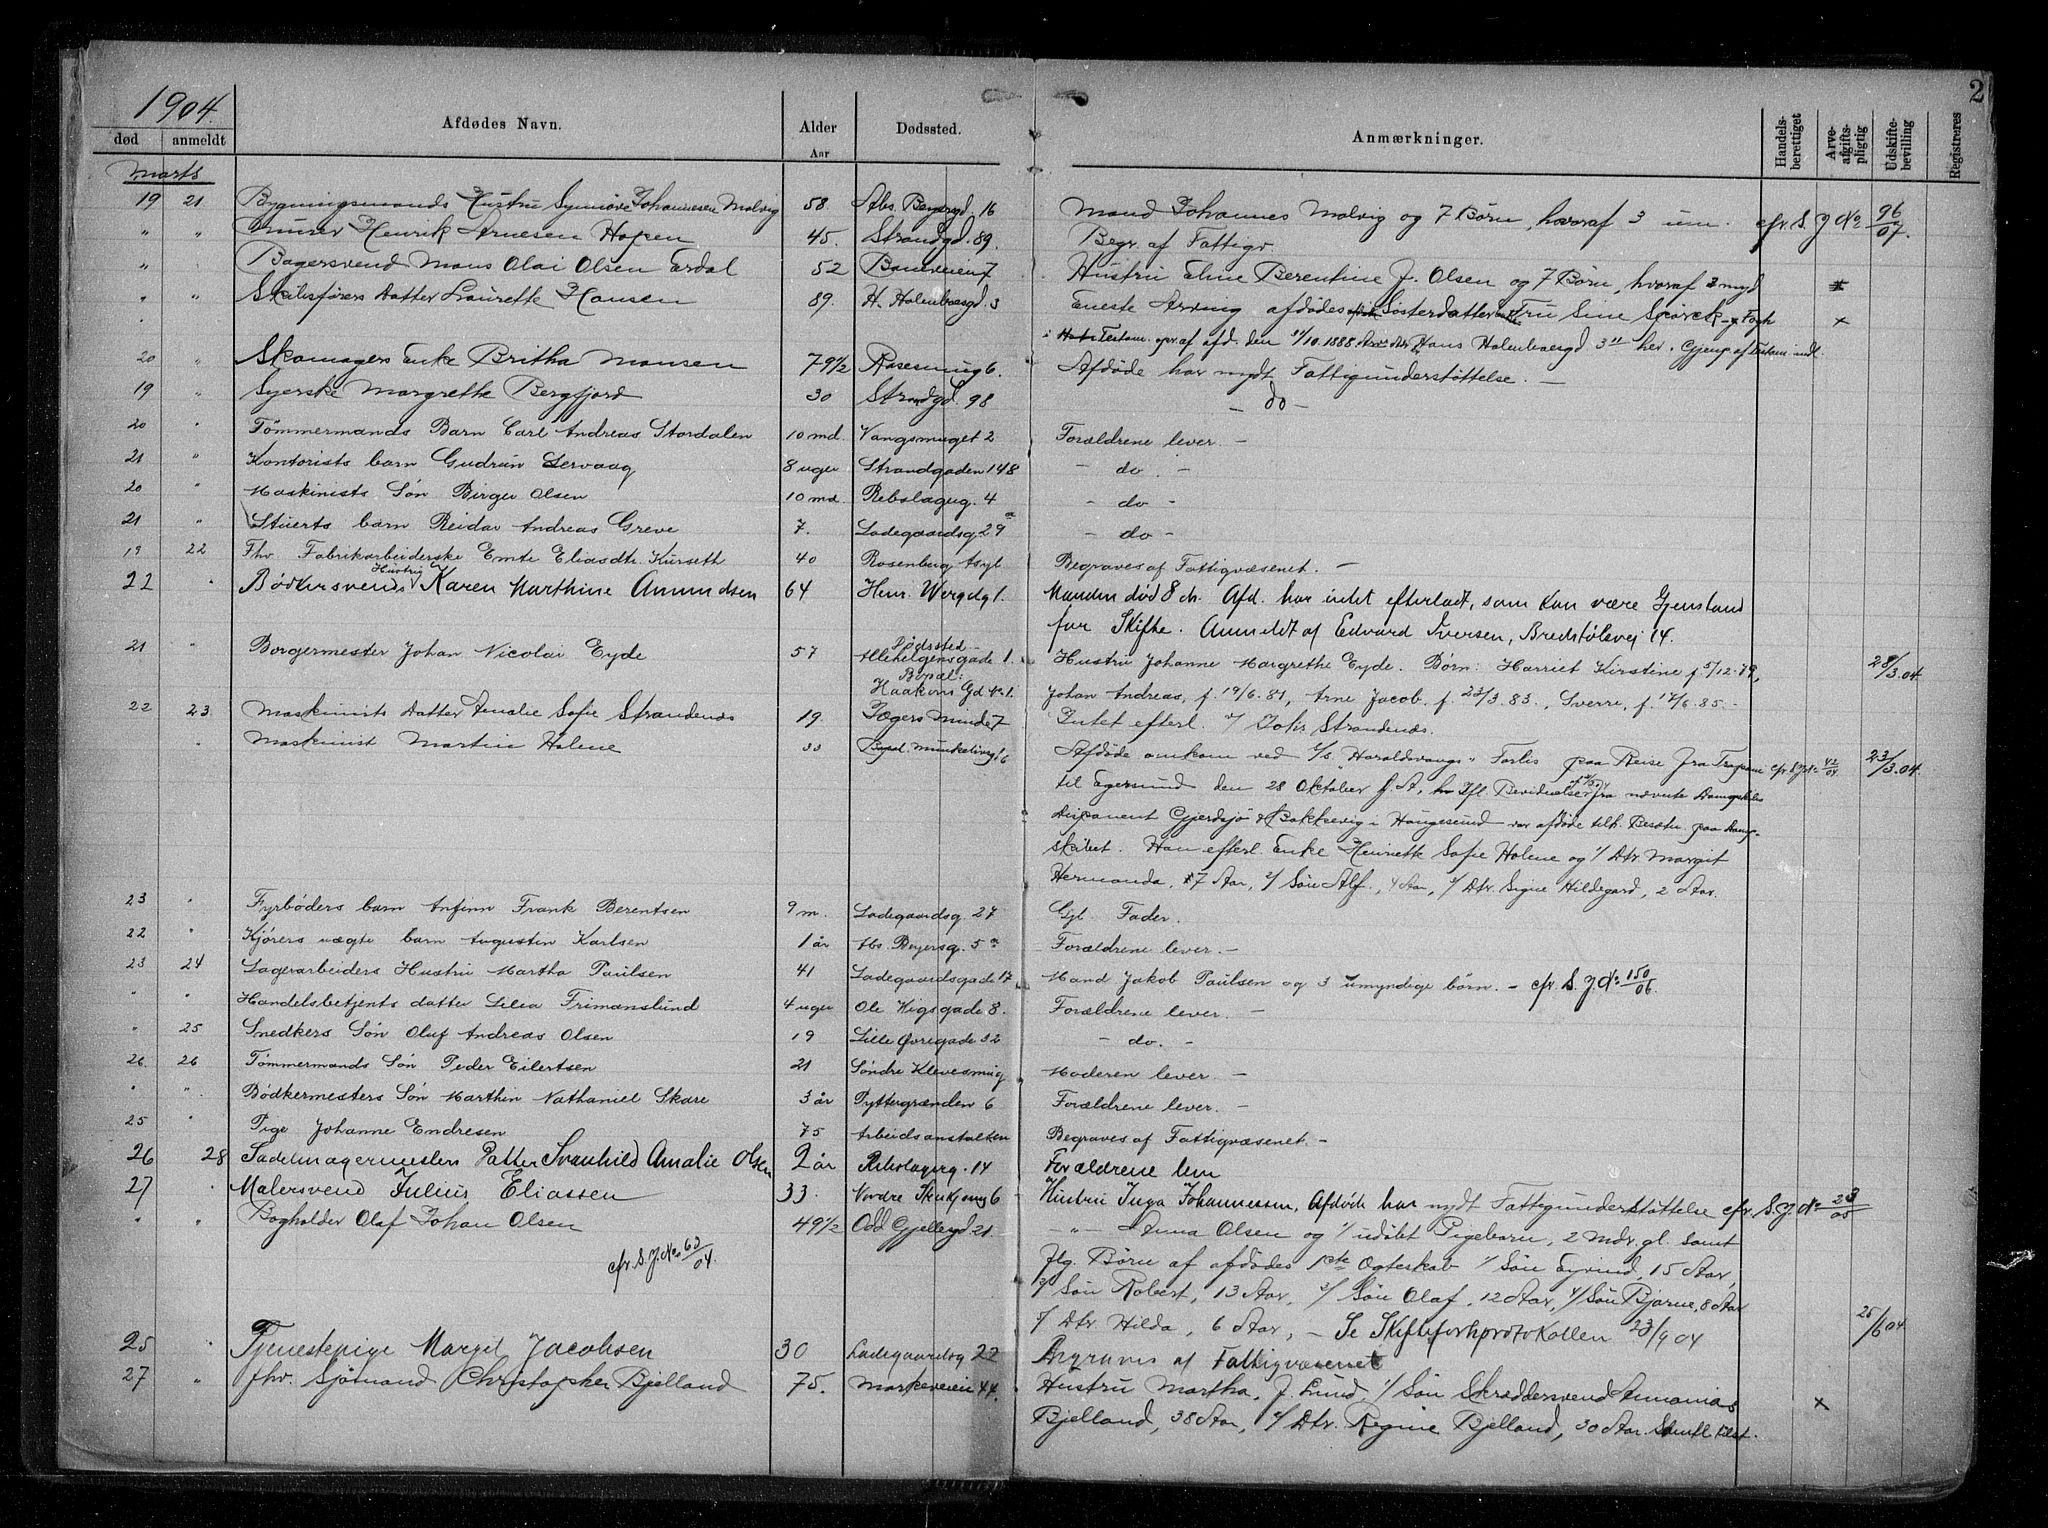 2
1904.
død anmeldt Afdødes Navn. Alder Aar Dødssted. Anmærkninger. Handelsberettiget Arveafgiftspligtig Udskiftebevilling Registreres
Marts
19 21 Bygningsmands Hustru Synnøve Johannesen Malvig 58. Abs. Beyersgd. 16 Mand Johannes Malvig og 7 Børn, hvoraf 3 um. cfr. S. J. No 96/07.
" " Murer Henrik Arnesen Hopen 45. Strandgd. 89. Begr. af Fattigv.
" Bagersvend Mons Olai Olsen Erdal 52 Baneveien 7 Hustru Eline Berentine J. Olsen og 7 Børn, hvoraf 3 myd
" " Skibsførers Datter Laurette Hansen 89. H. Holmboesgd. 3 Eneste Arving afdødes Søsterdatter Fru Sine Störck x
i Testam. opr. af afd. den 31/10.1888 Hans Holmboesgd 3 her. Gjenp. af Testam. indl.
20 " Skomagers Enke Britha Monsen 79 1/2 Rosesmug 6. Afdøde har nydt Fattigunderstøttelse. —
19 " Syerske Margrethe Bergfjord 30 Strandgd. 98 — do —
20 " Tømmermands Barn Carl Andreas Stordalen 10 md. Vangsmuget 2 Forældrene lever. —
21 " Kontorists barn Gudrun Lervaag 8 uger Strandgaden 148 — do —
20 " Maskinists Søn Birger Olsen 10 md. Rebslagerg. 4 — do —
21 " Stuerts barn Reidar Andreas Greve 7. Ladegaardsg. 29 a — do —
19 22 Fhv. Fabrikarbeiderske Emte Eliasdtr. Kurseth 40 Rosenberg Asyl Begraves af Fattigvæsenet. —
22 " Bødkersvends Hustru Karen Marthine Amundsen 64 Henr. Wergdg 1. Manden død 8 ch. Afd. har intet efterladt, som kan være Gjenstand
for Skifte. Anmeldt af Edvard Iversen, Bredstølevej 14.
21 " Borgermester Johan Nicolai Eyde 57 Dødssted — Allehelgensgade 1. Hustru Johanne Margrethe Eyde. Børn: Harriet Kirstine f. 5/12.79, 28/3.04
Bopæl: Haakons Gd No 1. Johan Andreas, f. 19/6.81, Arne Jacob. f. 23/3.83., Sverre, f. 17/6.85. —
22 23 Maskinists Datter Amalie Sofie Strandenæs 19 Jægers minde 7 Intet efterl. v/ Johs Strandenæs.
" Maskinist Martin Holene 33 Bopæl Munkelivsg. 6 Afdøde omkom ved S/s "Haraldsvangs" Forlis paa Reise fra Trapani cfr. S. J. No 42/04 23/3.04.
til Egersund den 28 Oktober f. A, Ifl. Bevidnelse fra nævnte Dampskibs
Disponent Gjerdsjø & Bakkevig i Haugesund var afdøde tilh. Besætn. paa Damp-
skibet. Han efterl. Enke Henriette Sofie Holene og 1/ Dtr. Margit
Hermanda, 7 Aar, 2/ Søn Alf., 4 Aar, 3/ Dtr. Signe Hildegard, 2 Aar.
23 " Fyrbøders barn Anfinn Frank Berentsen 9 m. Ladegaardsg. 27 Gjl. Fader.
22 " Kjørers uægte barn Augustin Karlsen 1 år Abs. Beyersg. 5 a Forældrene lever. —
23 24 Lagerarbeiders Hustru Martha Paulsen 41 Ladegaardsgade 17 Mand Jakob Paulsen og 3 umyndige børn. — cfr. S. J. No 150/06.
" " Handelsbetjents datter Lilla Frimanslund 4 uger Ole Vigsgade 8. Forældrene lever. —
" 25 Snedkers Søn Oluf Andreas Olsen 19 Lille Øvregade 32 — do. —
26 26 Tømmermands Søn Peder Eilertsen 21 Søndre Klevesmug Moderen lever. —
" " Bødkermesters Søn Marthin Nathaniel Skare 3 år Pyttergrænden 6 Forældrene lever. —
25 " Pige Johanne Endresen 75 Arbeidsanstalten Begraves af Fattigvæsenet. —
26 28 Sadelmagermesters Datter Svanhild Amalie Olsen 2 år Rebslagerg. 14 Forældrene leve
27 " Malersvend Julius Eliassen 33. Nordre Skutesmug 6 Hustru Inga Johannessen, Afdøde har nydt Fattigunderstøttelse cfr. S. J. No 23/05
" " Bogholder Olaf Johan Olsen 49 1/2 Odd Gjellesgd 21. — " — Anna Olsen og 1/ udøbt Pigebarn, 2 Mdr. gl. samt
cfr. S. J. No 63/04. flg. Børn af afdødes 1ste Ægteskab 1/ Søn Eyvind, 15 Aar,
2/ Søn Robert, 13 Aar, 3/ Søn Olaf, 12 Aar, 4/ Søn Bjarne, 8 Aar
5/ Dtr. Hilda, 6 Aar, — Se Skifteforhprotokollen 23/9 04 25/6 04
25 " Tjenestepige Margit Jacobsen 30 Ladegaardsg 22 Begraves af Fattigvæsenet
27 " fhv. Sjømand Christopher Bjelland 75. Markeveien 44. Hustru Martha, J. Lund, 1/ Søn Skræddersvend Ananias x
Bjelland, 38 Aar, 2/ Dtr. Regine Bjelland, 30 Aar. Samtl tilst.